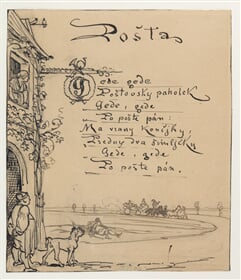 Pošta
Gede gede
Poštovský paholek
Gede, gede
Po poště pán:
Ma vrany koníčky,
dva
Gede, gede
Po poště pán.